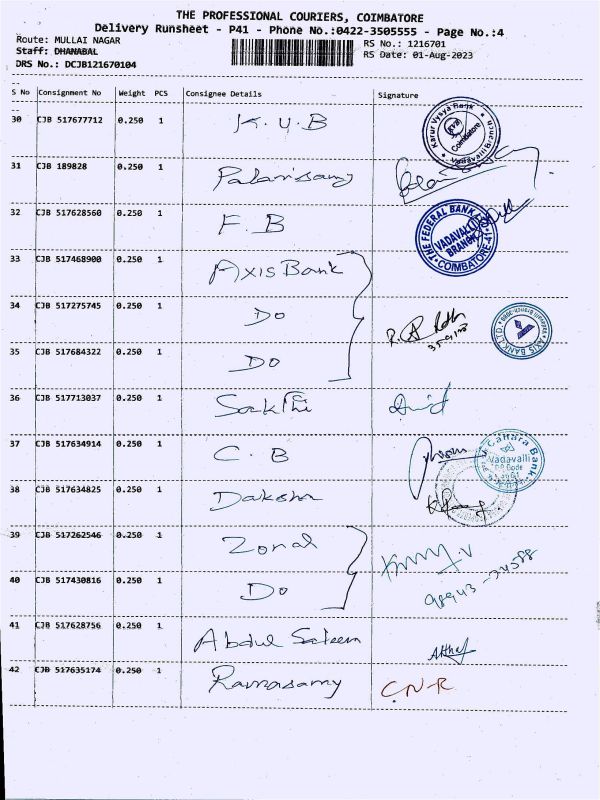 THE PROFESSIONAL COURIERS, COIMBATORE
Delivery Runsheet - P41 - Phone No.:0422-3505555 - Page No.:4
Route: MULLAI NAGAR RS No.: 1216701
Staff: DHANABAL RS Date: 01-Aug-2023
DRS No.: DCJB121670104
S No Consignment No Weight PCS Consignee Details Signature
30 CJB 517677712 0.250 1 K.V.B
Karur Vysya Bank Coimbatore Vadavalli Branch
31 CJB 189828 0.250 1 Palanisamy
32 CJB 517628560 0.250 1 F.B
THE FEDERAL BANK VADAVALLI BRANCH COIMBATORE-41
33 CJB 517468900 0.250 1 Axis Bank
34 CJB 517275745 0.250 1 Do
AXIS BANK LTD.
35 CJB 517684322 0.250 1 Do
36 CJB 517713037 0.250 1 Sakthi
37 CJB 517634914 0.250 1 C.B
Canara Bank Vadavalli DP Code
38 CJB 517634825 0.250 1 Daksha
39 CJB 517262546 0.250 1 Zonal
40 CJB 517430816 0.250 1 Do
41 CJB 517628756 0.250 1 Abdul Saleem
42 CJB 517635174 0.250 1 Ramasamy C.N.R